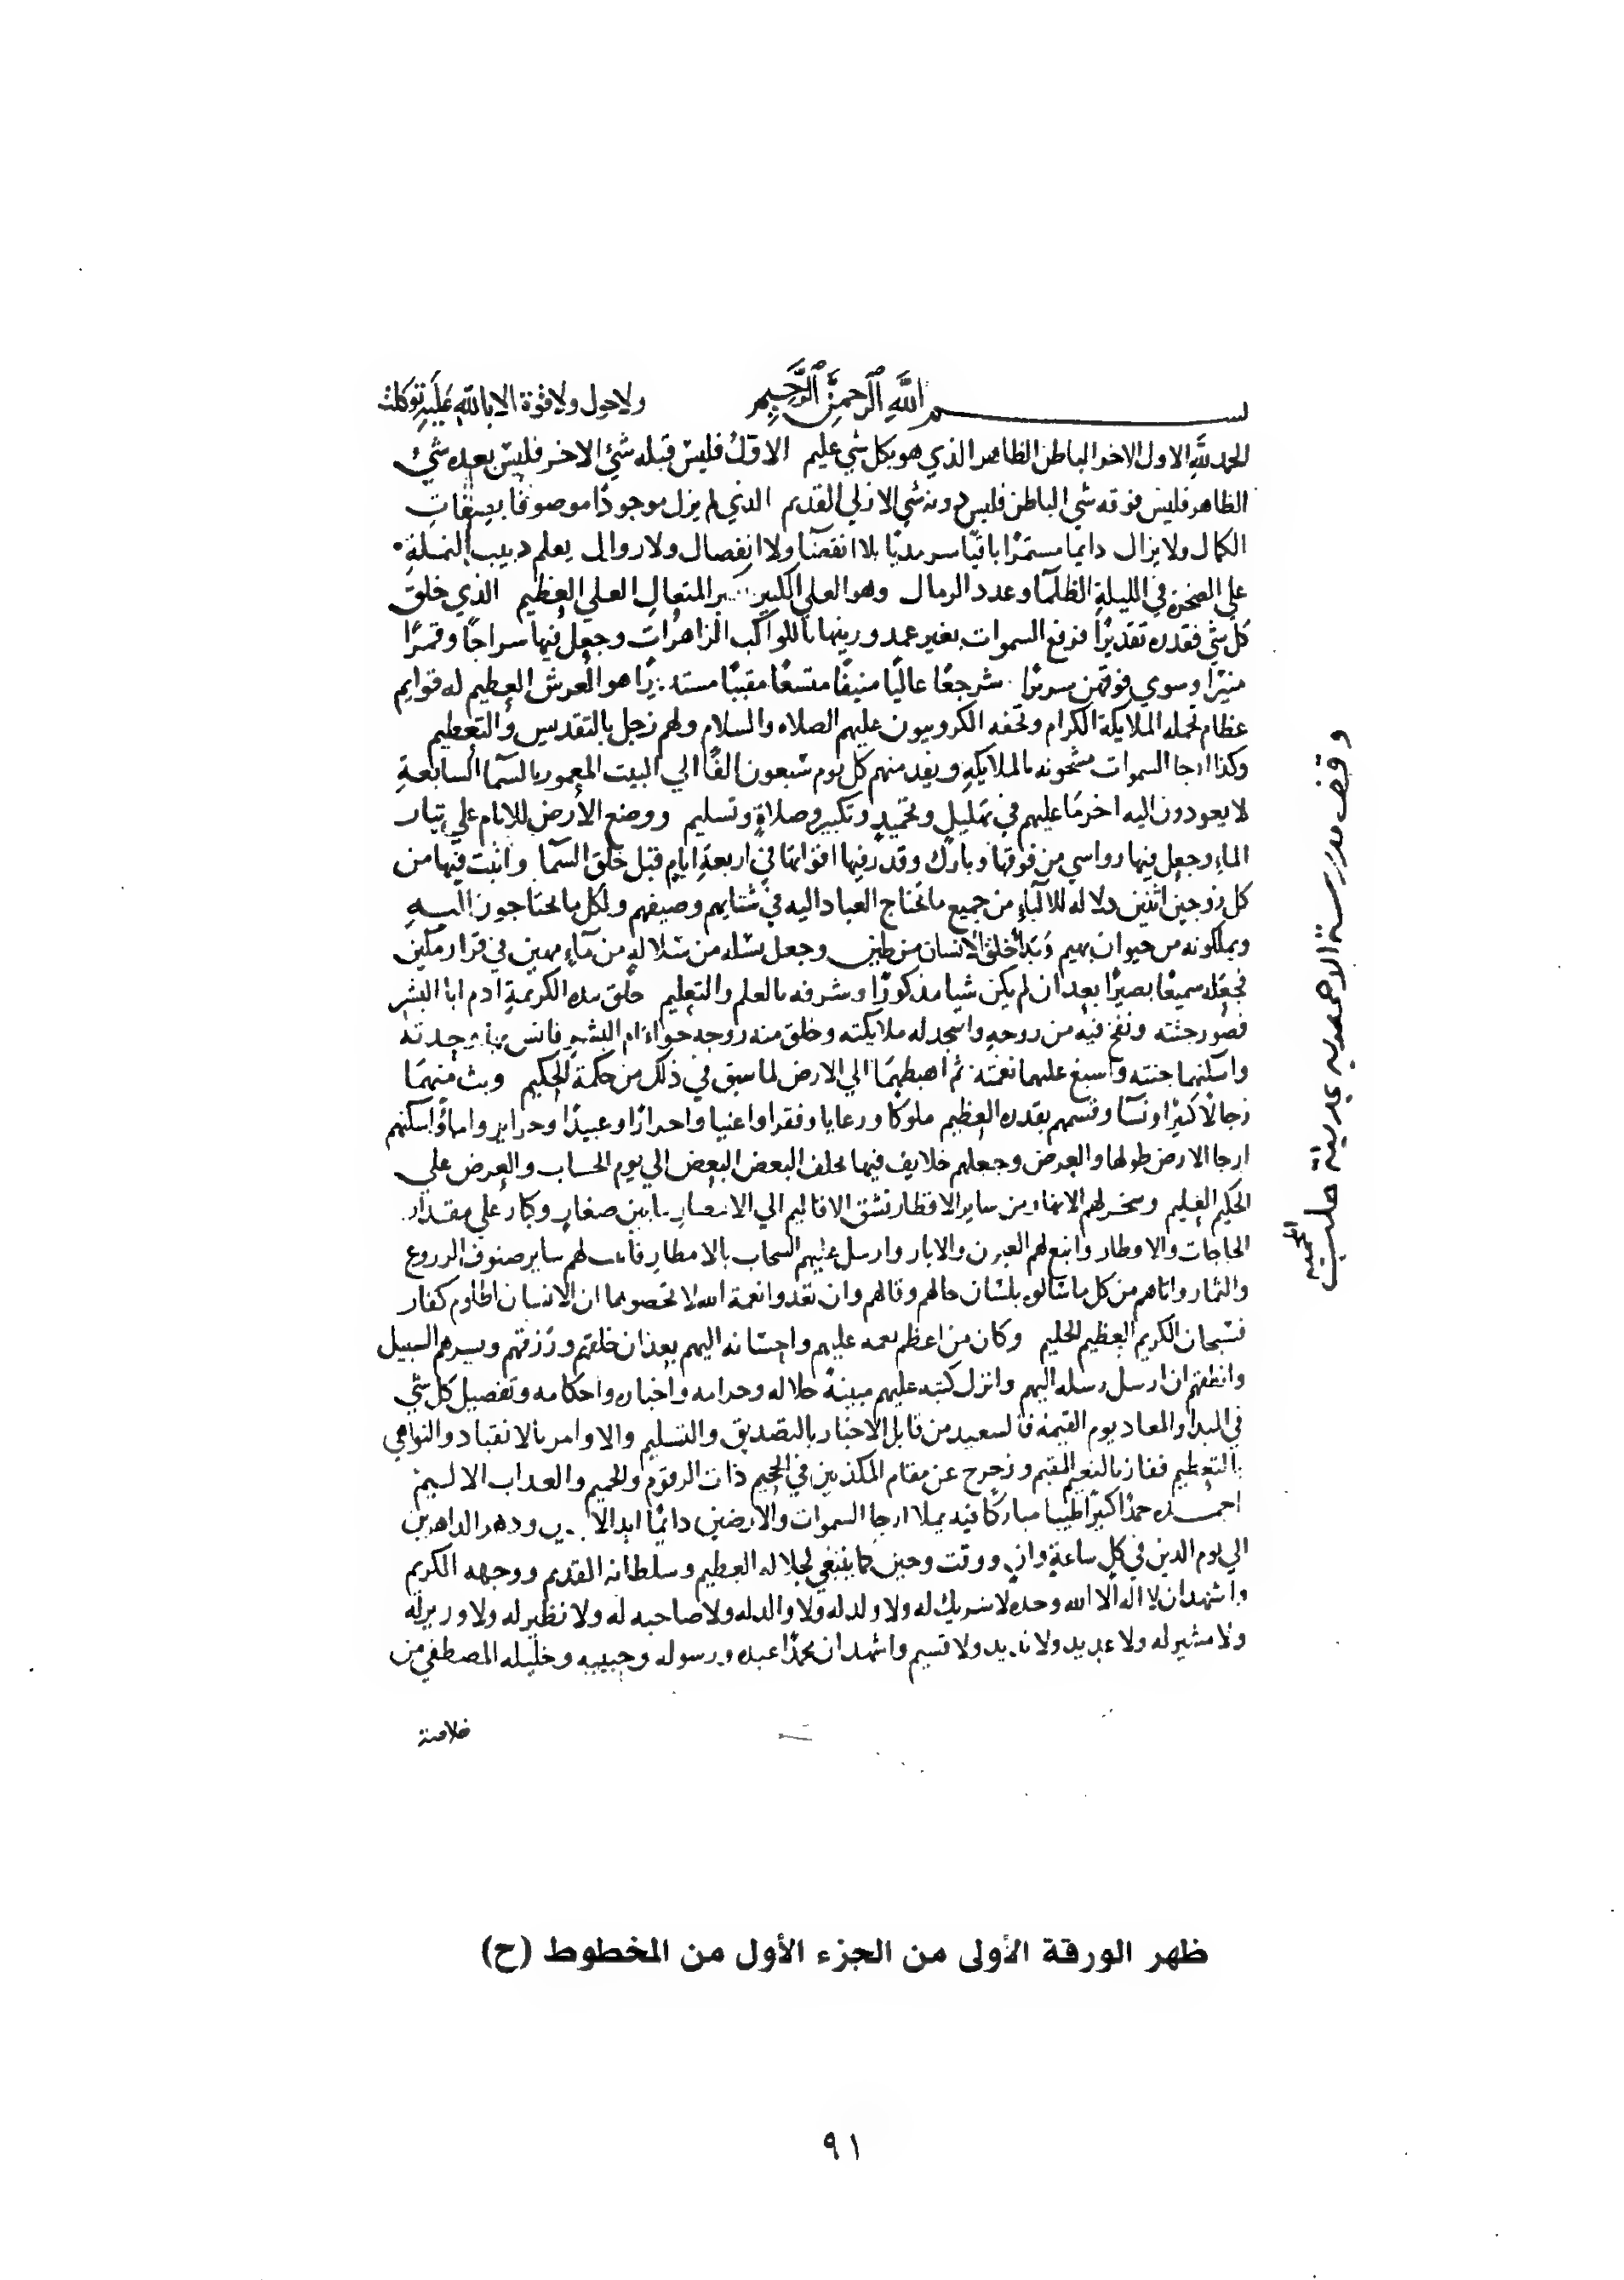 بسم الله الرحمن الرحيم ولا حول ولا قوة الا بالله عليه توكلت
الحمد لله الاول الاخر الباطن الظاهر الذي هو بكل شي عليم الاول فليس قبله شئ الاخر فليس بعده شئ
الظاهر فليس فوقه شي الباطن فليس دونه شي الازلي القديم الذي لم يزل موجودًا موصوفًا بصفات
الكمال ولا يزال دايما مستمرًا باقيًا سرمديًا بلا انقضآ ولا انفصال ولا زوال يعلم دبيب النملة
على الصخرة في الليلة الظلمآ وعدد الرمال وهو العلي الكبير المتعال العلي العظيم الذي خلق
كل شي فقدره تقديرًا فرفع السموات بغير عمد وزينها بالكواكب الزاهرات وجعل فيها سراجًا وقمرًا
منيرًا وسوي فوقهن سريرًا شرجعًا عاليًا منيفًا متسعًا مقببًا مستديرًا هو العرش العظيم له قوايم
عظام تحمله الملايكة الكرام وتحفه الكروبيون عليهم الصلاه والسلام ولهم زجل بالتقديس والتعظيم
وكذا ارجا السموات مشحونه بالملايكه ويفد منهم كل يوم سبعون الفًا الي البيت المعمور بالسمآ السابعة
لا يعودون اليه اخر ما عليهم في تهليل وتحميد وتكبير وصلاة وتسليم ووضع الارض للانام علي تيار
الماء وجعل فيها رواسي من فوقها وبارك وقدر فيها اقواتها في اربعة ايام قبل خلق السمآ وانبت فيها من
كل زوجين اثنين دلاله للالبآء من جميع ما يحتاج العباد اليه في شتايهم وصيفهم ولكل ما يحتاجون اليه
ويملكونه من حيوان بهيم وبدأ خلق الانسان من طين وجعل نسله من سلالة من مآء مهين في قرار مكين
فجعله سميعًا بصيرًا بعد ان لم يكن شيا مذكورًا وشرفه بالعلم والتعليم خلق بيده الكريمة ادم ابا البشر
فصور جثته ونفخ فيه من روحه واسجد له ملايكته وخلق منه زوجه حواء ام البشر فانس بها وحدته
واسكنهما جنته واسبغ عليهما نعمته ثم اهبطهما الي الارض لما سبق في ذلك من حكمة الحكيم وبث منهما
رجالًا كثيرًا ونسآ وقسمهم بقدره العظيم ملوكًا ورعايا وفقرا واغنيا واحرارًا وعبيدًا وحراير واماءً واسكنهم
ارجا الارض طولها والعرض وجعلهم خلايف فيها يخلف البعض البعض الي يوم الحساب والعرض علي
الحكيم العليم وسخر لهم الانهار من ساير الاقطار تشق الاقاليم الي الامصار ما بين صغار وكبار علي مقدار
الحاجات والاوطار وانبع لهم العيون والابار وارسل عليهم السحاب بالامطار فانبت لهم ساير صنوف الزروع
والثمار واتاهم من كل ما سالوه بلسان حالهم وقالهم وان تعدوا نعمة الله لا تحصوها ان الانسان لظلوم كفار
فسبحان الكريم العظيم الحليم وكان من اعظم نعمه عليهم واحسانه اليهم بعد ان خلقهم ورزقهم ويسر لهم السبيل
وانطقهم ان ارسل رسله اليهم وانزل كتبه عليهم مبينة حلاله وحرامه واخباره واحكامه وتفصيل كل شي
في المبدأ والمعاد يوم القيمة فالسعيد من قابل الاخبار بالتصديق والتسليم والاوامر بالانقياد والنواهي
بالتعظيم ففاز بالنعيم المقيم وزحزح عن مقام المكذبين في الجحيم ذات الزقوم والحميم والعذاب الاليم
احمده حمدًا كثيرًا طيبا مباركًا فيه يملا ارجا السموات والارضين دائمًا ابد الابدين ودهر الداهرين
الي يوم الدين في كل ساعة وان ووقت وحين كما ينبغي لجلاله العظيم وسلطانه القديم ووجهه الكريم
واشهد ان لا اله الا الله وحده لا شريك له ولا ولد له ولا والد له ولا صاحبه له ولا نظير له ولا وزير له
ولا مشير له ولا عديد ولا نديد ولا قسيم واشهد ان محمدًا عبده ورسوله وحبيبه وخليله المصطفي من
خلاصة
وقف مدرسة الاحمديه بمدينة حلب
المحميه
ظهر الورقة الأولى من الجزء الأول من المخطوط (ح)
٩١